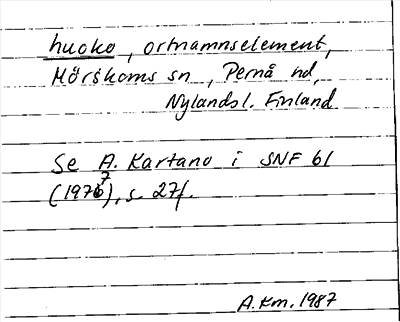 huoko, ortnamnselement,
Mörskoms sn, Pernå hd,
Nylandsl. Finland
Se A. Kartano i SNF 61
(1977), s. 27f.
A.Km. 1987